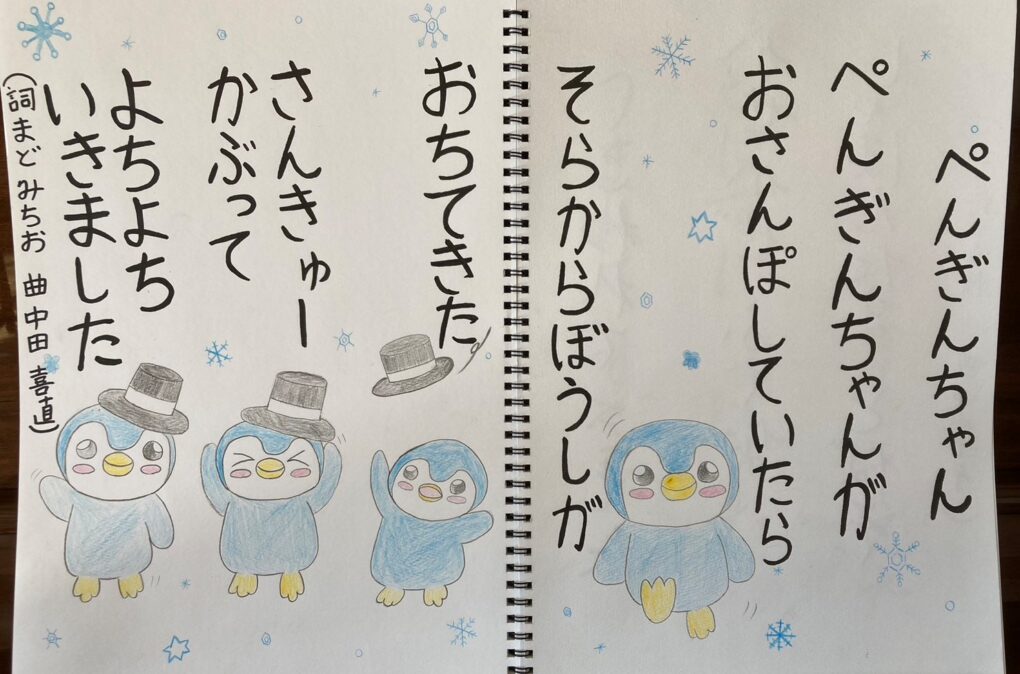 ぺんぎんちゃん
ぺんぎんちゃんが
おさんぽしていたら
そらからぼうしが
おちてきた
さんきゅー
かぶって
よちよち
いきました
(詞まどみちお 曲中田喜直)